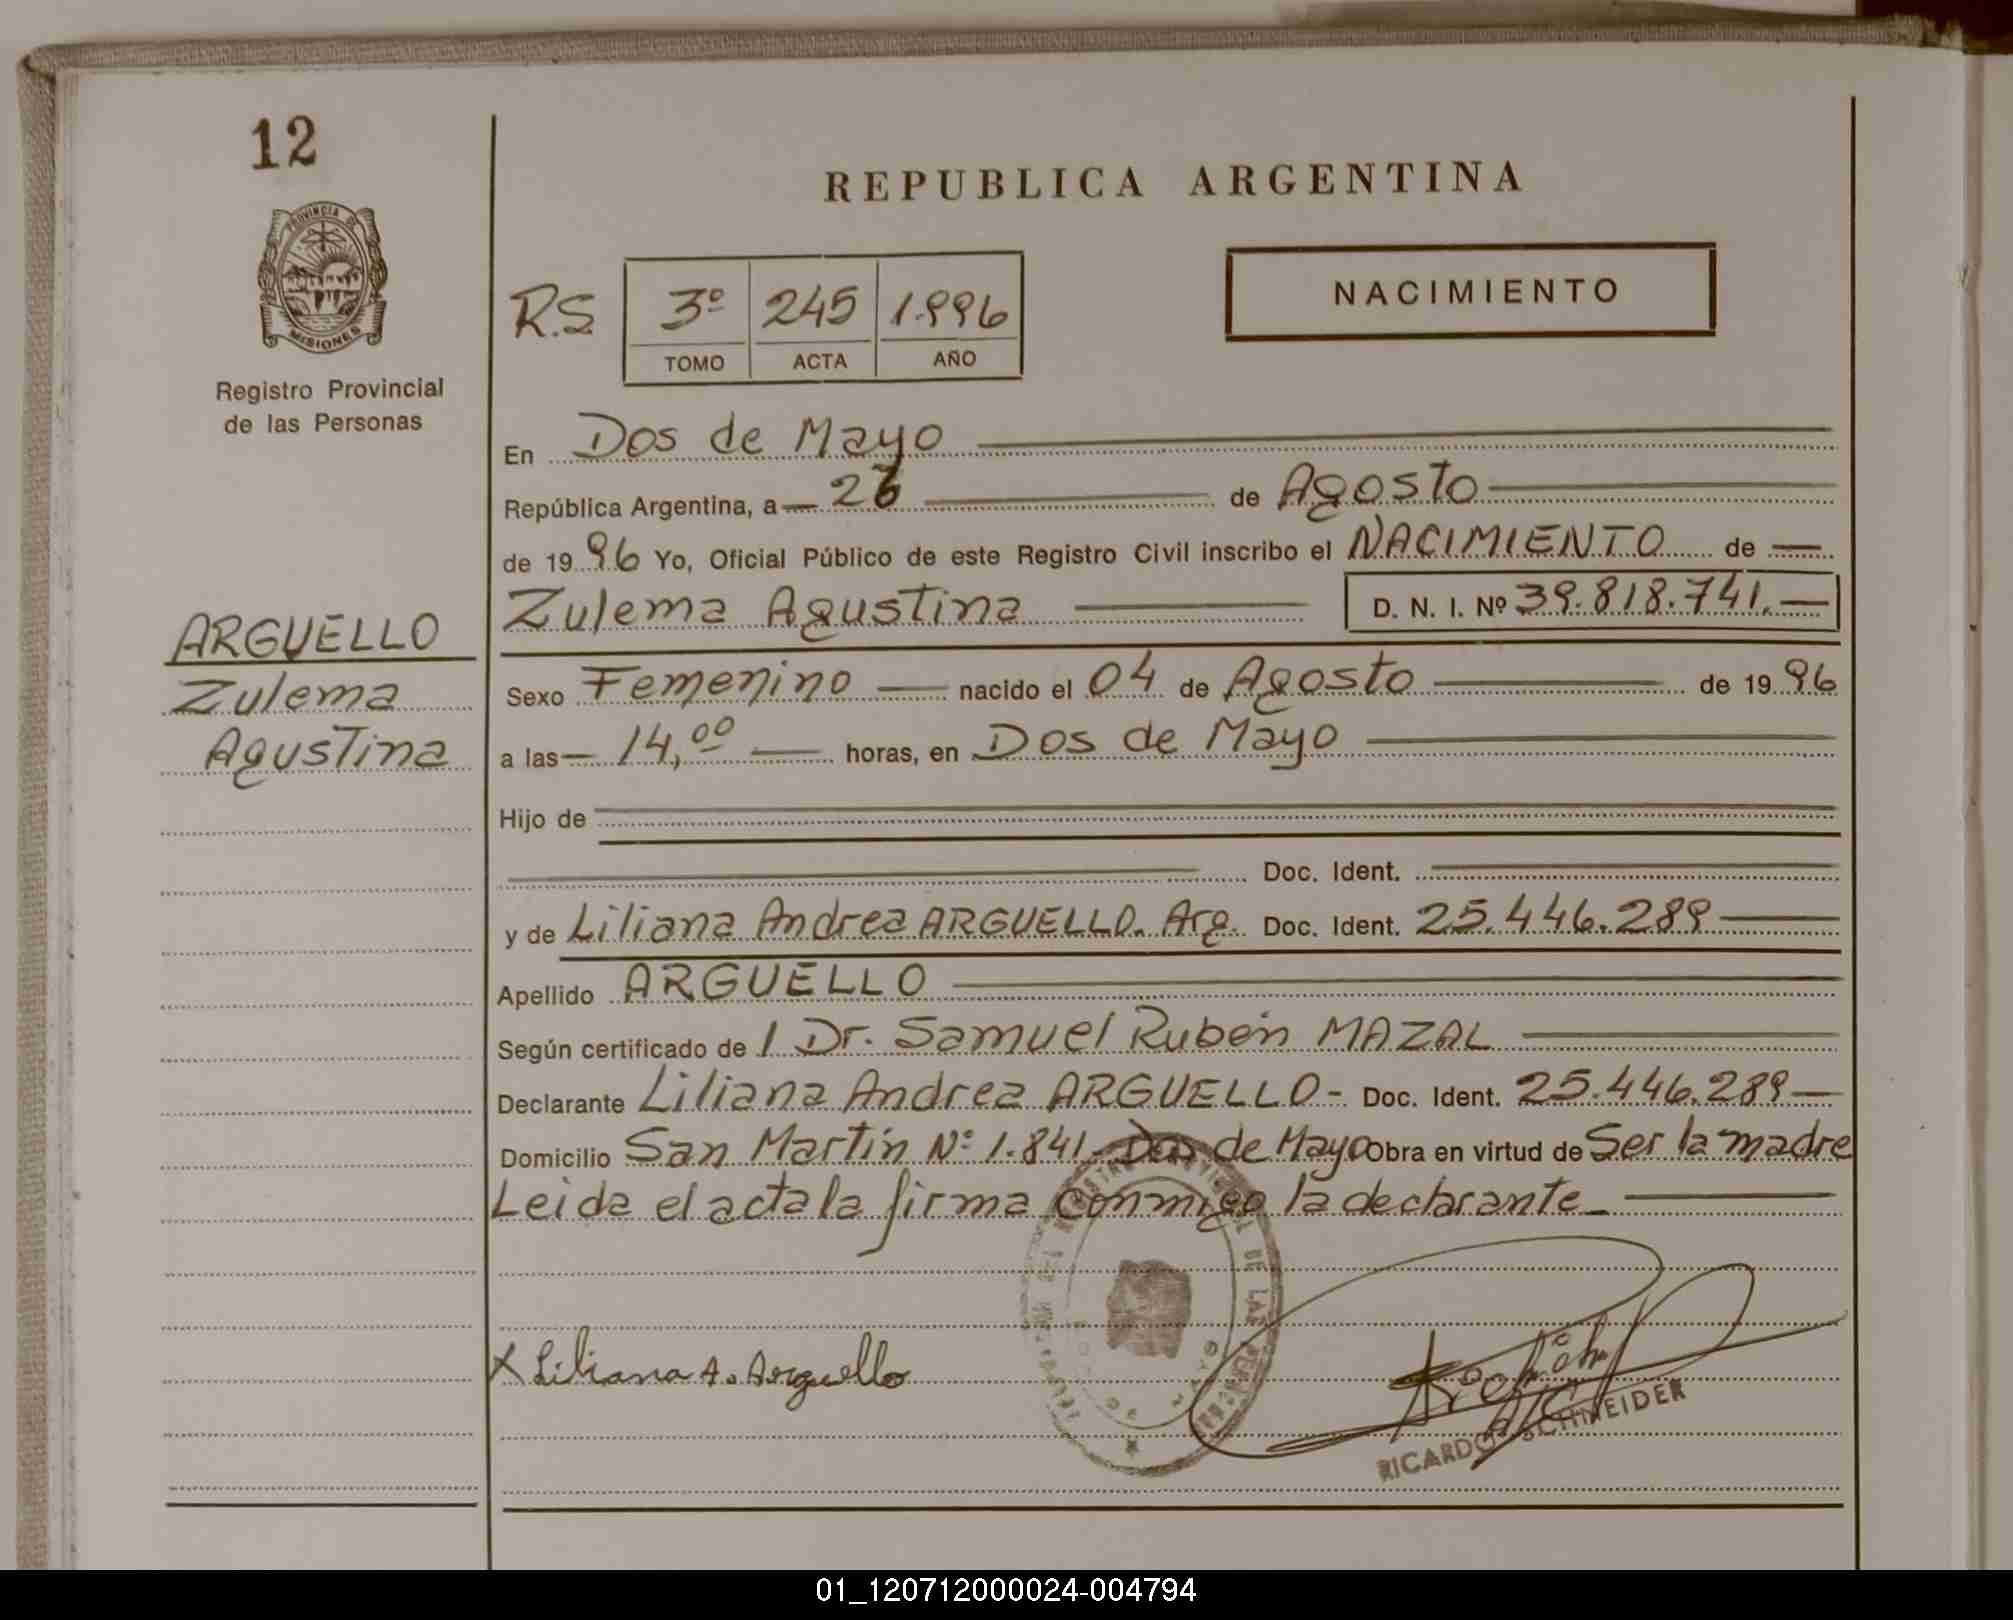 12
REPUBLICA ARGENTINA
PROVINCIA DE
MISIONES
Registro Provincial
de las Personas
R.S. 3º 245 1.996
TOMO ACTA AÑO
NACIMIENTO
En Dos de Mayo
República Argentina, a 26 de Agosto
de 1996 Yo, Oficial Público de este Registro Civil inscribo el NACIMIENTO de
Zulema Agustina D. N. I. Nº 39.818.741.
ARGUELLO
Zulema
Agustina
Sexo Femenino nacido el 04 de Agosto de 1996
a las 14,00 horas, en Dos de Mayo
Hijo de
Doc. Ident.
y de Liliana Andrea ARGUELLO. Arg. Doc. Ident. 25.446.289
Apellido ARGUELLO
Según certificado de l Dr. Samuel Rubén MAZAL
Declarante Liliana Andrea ARGUELLO- Doc. Ident. 25.446.289
Domicilio San Martín Nº 1.841- Dos de Mayo Obra en virtud de Ser la madre
Leida el acta la firma conmigo la declarante
X Liliana A. Arguello
RICARDO SCHNEIDER
01_120712000024-004794